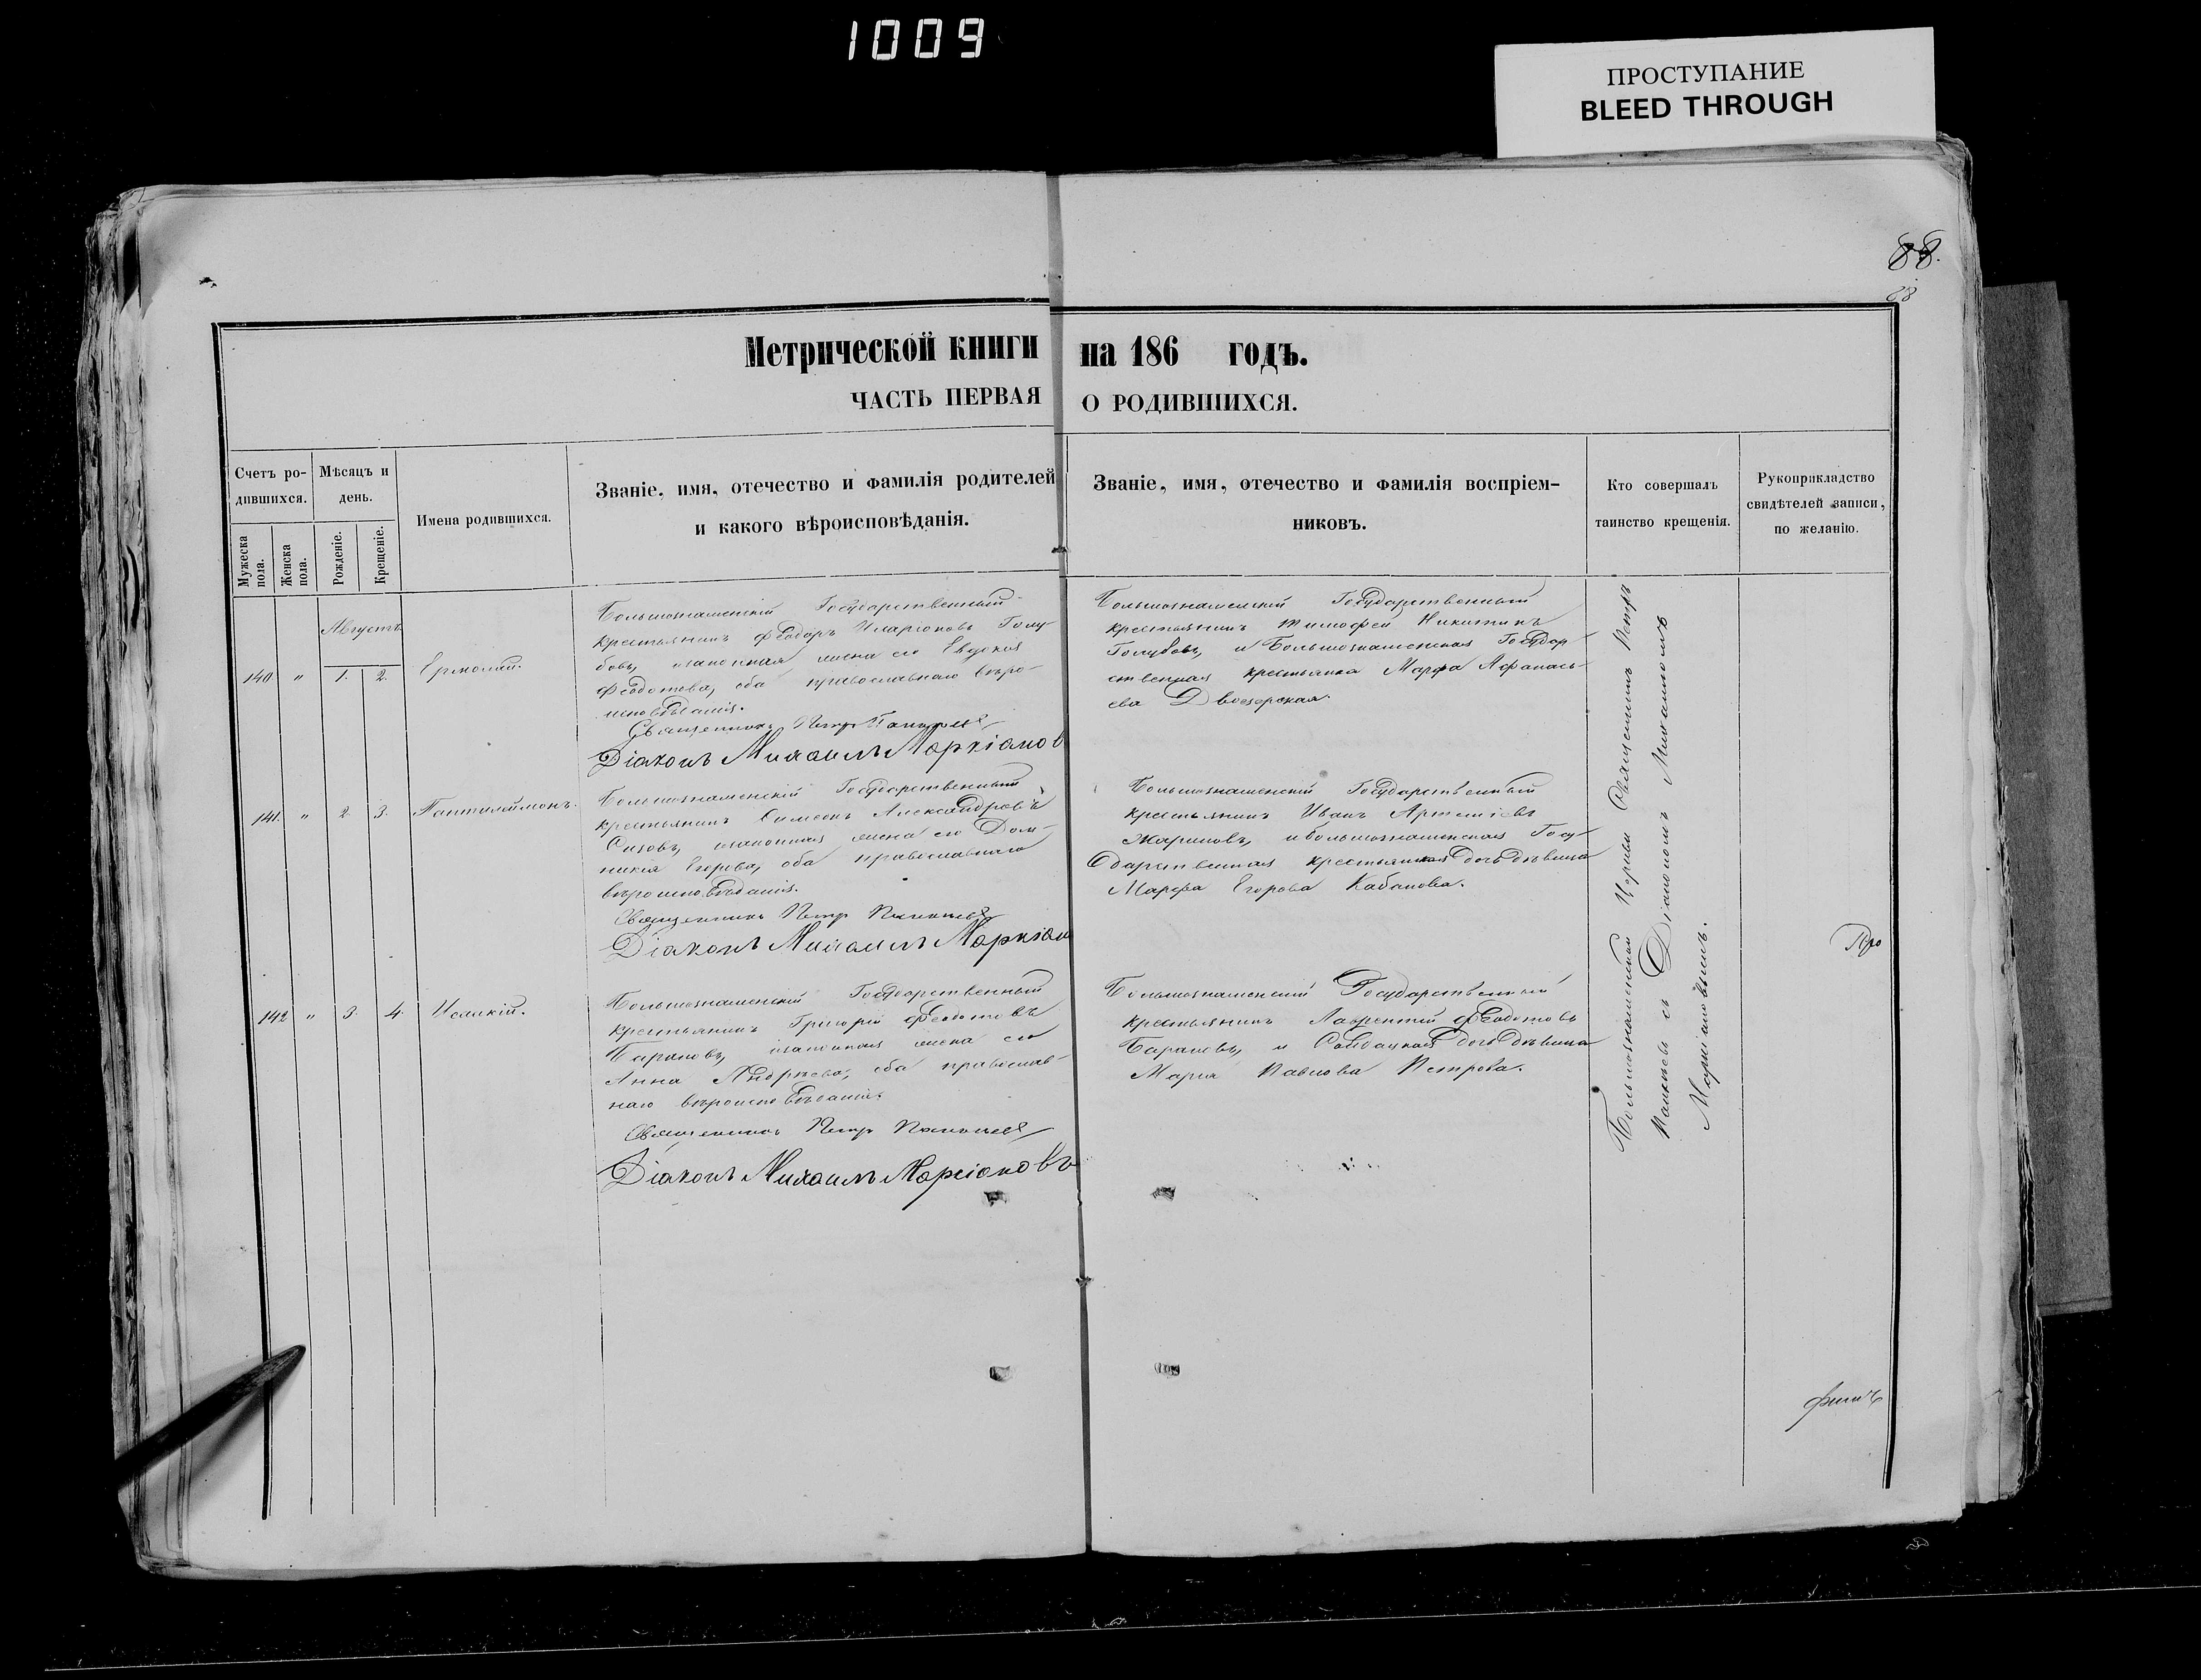 1009
ПРОСТУПАНИЕ
BLEED THROUGH
88.
Метрической книги на 186 годъ.
ЧАСТЬ ПЕРВАЯ О РОДИВШИХСЯ.
Счетъ ро-
дившихся.
Мужеска
пола.
Женска
пола.
Мѣсяцъ и
день.
Рожденіе.
Крещеніе.
Имена родившихся.
Званіе, имя, отечество и фамилія родителей
и какого вѣроисповѣданія.
Званіе, имя, отечество и фамилія воспріем-
никовъ.
Кто совершалъ
таинство крещенія.
Рукоприкладство
свидѣтелей записи,
по желанію.
Августъ
140 " 1. 2. Ермолай.
Большознаменскій Государственный
крестьянинъ Феодоръ Иларіоновъ Голу-
бовъ, законная жена его Евдокія
Федотова, оба православнаго вѣро-
исповѣданія.
Священникъ Петръ
Діаконъ Михаилъ Маркіанов
Большознаменскій Государственный
крестьянинъ Тимофей Никитинъ
Голубовъ, и Большознаменская Государ-
ственная крестьянка Марфа Афанась-
ева
141. " 2. 3. Пантелеймонъ.
Большознаменскій Государственный
крестьянинъ Симеонъ Александровъ
Сизовъ, законная жена его Дом-
никія Егорова, оба православнаго
вѣроисповѣданія.
Священникъ Петръ
Діаконъ Михаилъ Маркіан
Большознаменскій Государственный
крестьянинъ Иванъ Артеміевъ
Жариновъ, и большознаменская Госу-
дарственная крестьянская дочь дѣвица
Марфа Егорова Кабанова.
142 " 3. 4. Исаакій.
Большознаменскій Государственный
крестьянинъ Григорій Феодотовъ
Барановъ, законная жена его
Анна Андреева, оба православ-
наго вѣроисповѣданія.
Священникъ Петръ
Діаконъ Михаилъ Маркіановъ
Большознаменскій Государственный
крестьянинъ Лаврентій Феодотовъ
Барановъ, и Солдатская дочь дѣвица
Марія Павлова Петрова.
Большознаменской Церкви Священникъ Петръ
съ Діакономъ Михаиломъ
Маркіановымъ.
Про